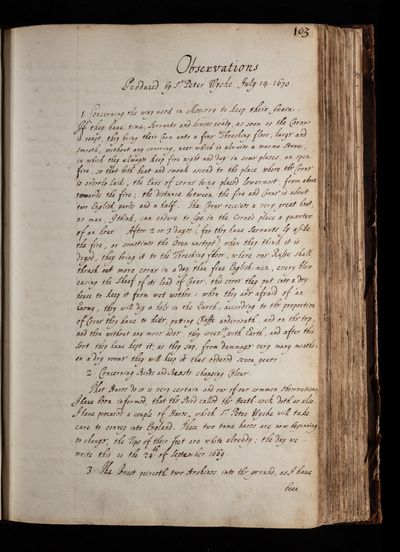 103
Observations
Produced by Sr Peter Wyche. July 14. 1670
1. Concerning the way used in Moscovy to keep their Graine.
If they have time, Servants and horses ready, as soon as the Corne
reapt, they bring their Corn unto a fine Threshing floor, large and
smooth, without any covering, neer which is alwaies a warme Stove,
in which they always keep fire night and day in some places, an open
fire, so that both heat and smoak ascend to the place where the Corne
is orderly laid, the Ears of corne being placed lowermost from above
towards the fire; the distance between the fire and Corne is about
two English yards and a half. The Corne receives a very great heat,
no man, I think, can endure to lye in the Cornes place a quarter
of an hour. After 2 or 3 days (for they have Servants ly aside
the fire, or sometimes the Oven unstopt) when they think it is
dryed, they bring it to the Threshing floor, where one Russe shall
thrash out more corne in a day than five English-men, every blow
easing the Sheaf of its load of Corne, this corne they put into a dry
house to keep it from wet wether: when they are afraid of an
Enemy, they will dig a hole in the Earth, according to the proportion
of Corne they have to hide, puting Chaffe underneath and on the top,
and then without any more adoe they cover it with Earth, and after this
sort they have kept it, as they say, from dammage very many months.
in a dry roome they will keep it thus ordered seven years.
2. Concerning Birds and Beasts changing Colour.
That Hares do so is very certain and one of our common Observations,
I have been informed, that the Bird called the Heath-cock doth so also.
I have procured a couple of Hares, which Sr Peter Wyche will take
care to convey into England. These two tame hares are now beginning
to change, the Tips of they feet are white already; the day we
write this is the 24th of September 1669
3. The Frost peirceth two Archines into the ground, as I have
been